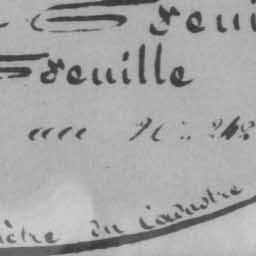 Feui
Feuille
au N° 242
ètre du Cadastre